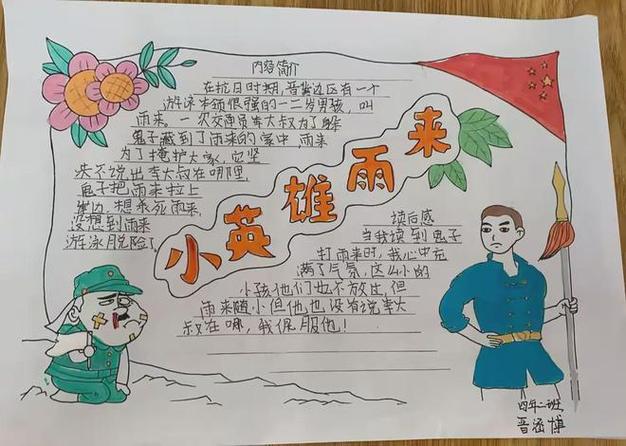 内容简介
在抗日时期,晋察边区有一个
游泳本领很强的一二岁男孩,叫
雨来。一次交通员李大叔为了躲
鬼子藏到了雨来的家中,雨来
为了掩护大家,它坚
决不说出李大叔在哪里
鬼子把雨来拉上
岸边,想杀死雨来,
没想到雨来
游泳脱险了
小英雄雨来
读后感
当我读到鬼子
打雨来时,我心中充
满了气氛,这么小的
小孩他们也不放过,但
雨来随小但他也没有说李大
叔在哪,我佩服他!
四年二班
晋涵博